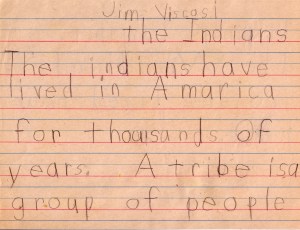 Jim Viscosi
the Indians
The indians have
lived in Amarica
for thousands of
years. A tribe is a
group of people